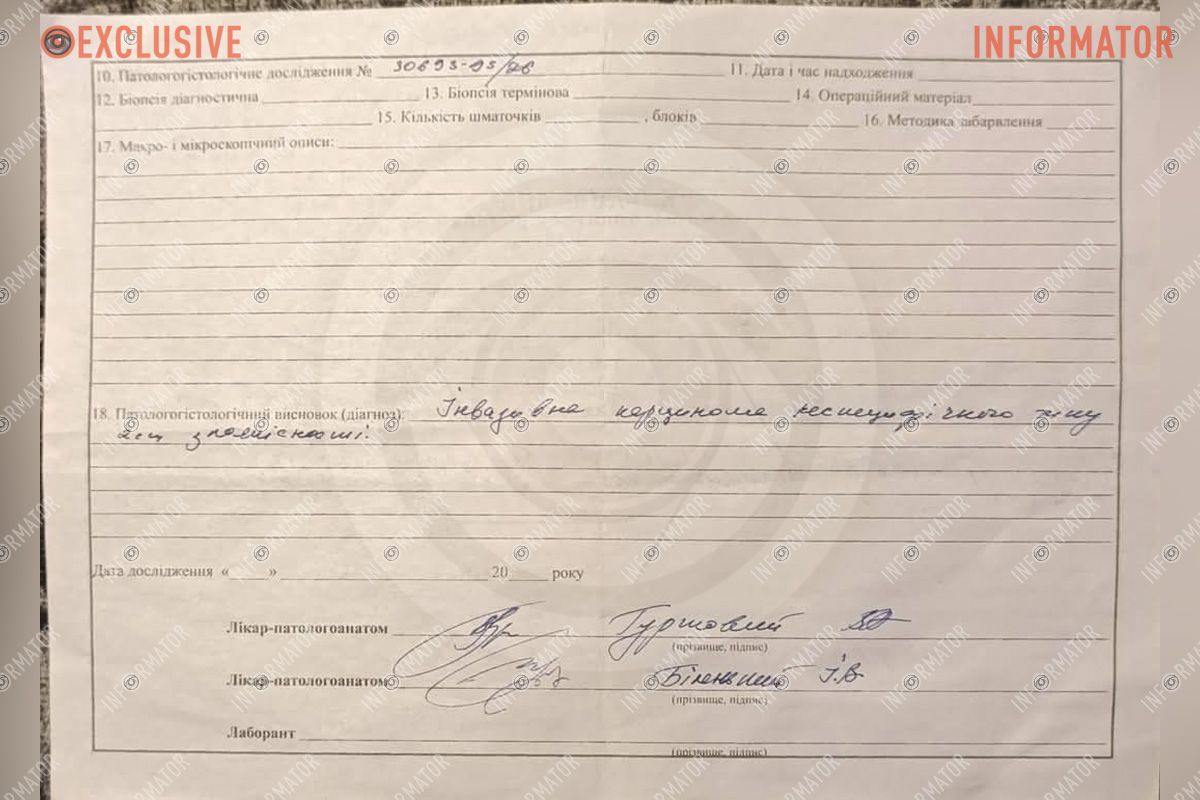 EXCLUSIVE INFORMATOR
10. Патологогістологічне дослідження № 11. Дата і час надходження
12. Біопсія діагностична 13. Біопсія термінова 14. Операційний матеріал
15. Кількість шматочків , блоків 16. Методика забарвлення
17. Макро- і мікроскопічний описи:
18. Патологогістологічний висновок (діагноз): Інвазивна карцинома неспецифічного типу
злоякісності.
Дата дослідження « » 20 року
Лікар-патологоанатом
(прізвище, підпис)
Лікар-патологоанатом І.В
(прізвище, підпис)
Лаборант
(прізвище, підпис)